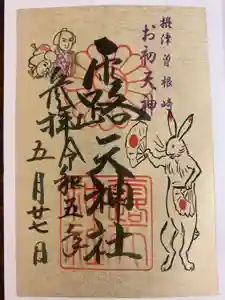 摂津曽根崎
お初天神
露天神社
奉拝
令和五年
五月廿七日